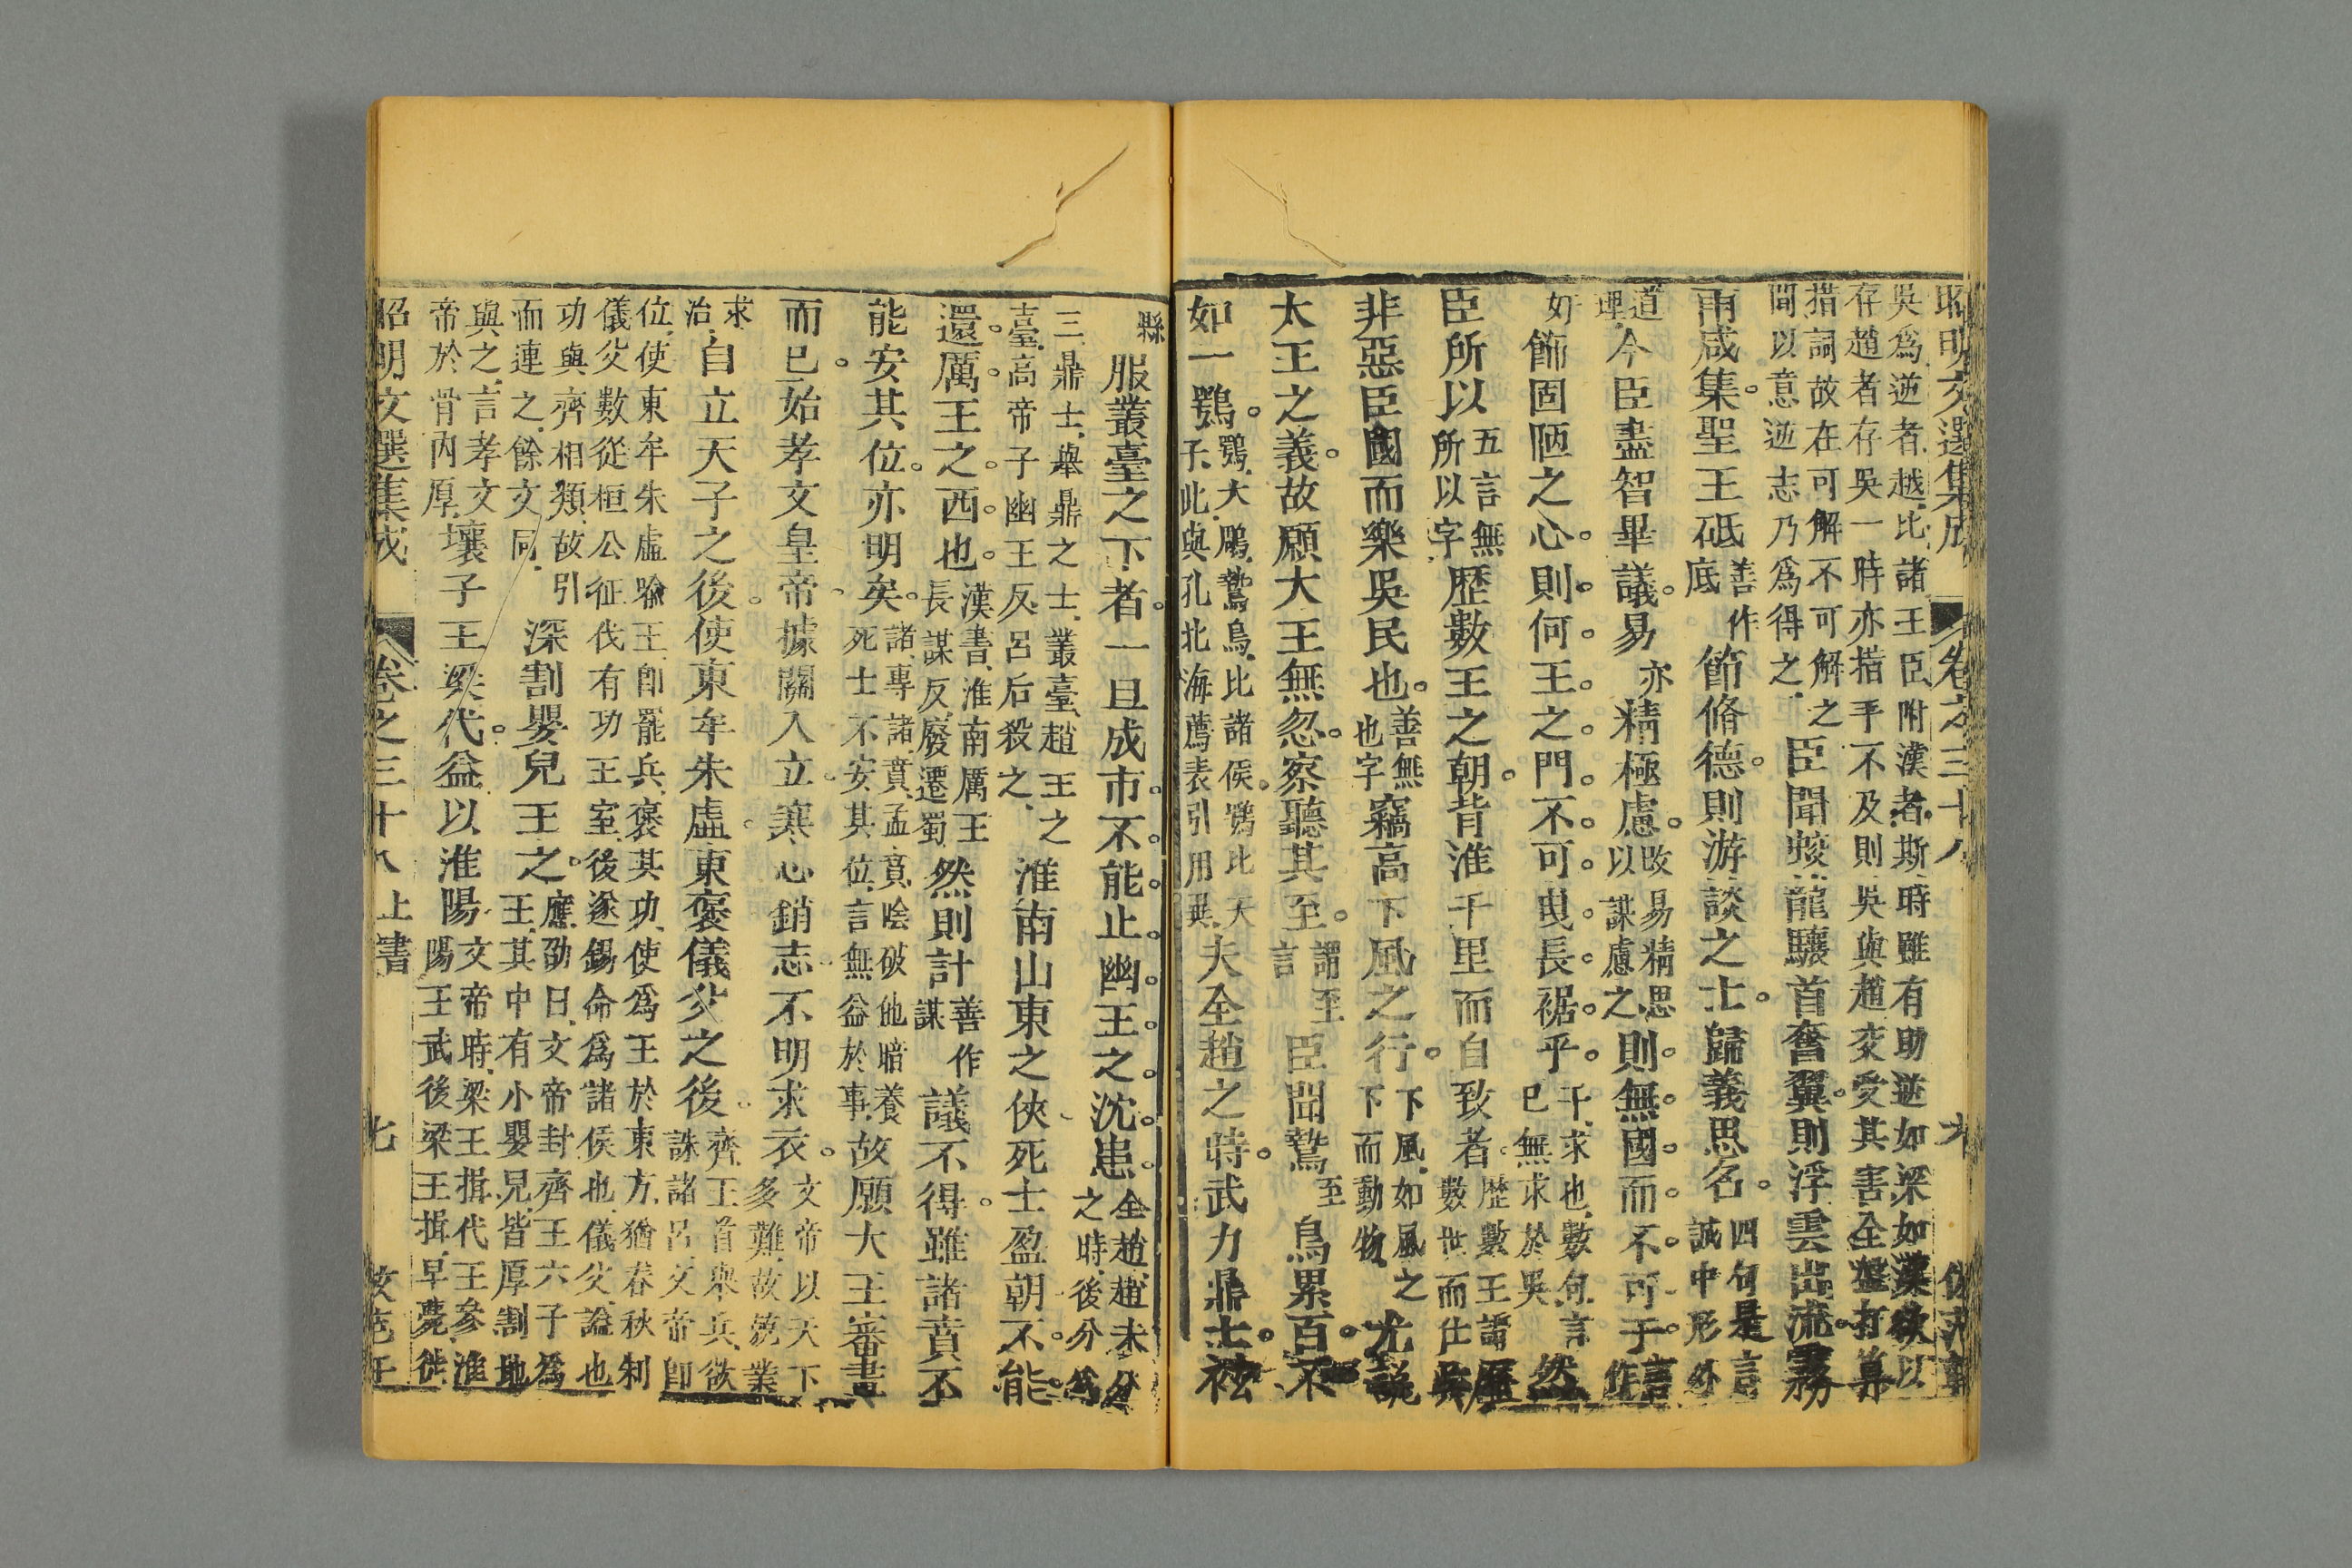 昭明文選集成 卷之三十八 六
吳為逆者越比諸王臣附漢者斯時雖有助逆如梁如漢欲以
存趙者存吳一時亦措手不及則吳與趙交受其害全盤打算
措詞故在可解不可解之
間以意逆志乃為得之
臣聞蛟龍驤首奮翼則浮雲出流霧
雨咸集聖王砥善作底節脩德則游談之士歸義思名四句是言誠中形外
道理今臣盡智畢議易亦精極慮改易精思以謀慮之則無國而不可于言作
奸飾固陋之心則何王之門不可曳長裾乎干求也數句言已無求於吳然
臣所以五言無所以字歷數王之朝背淮千里而自致者歷數王謂數世而仕歷吳
非惡臣國而樂吳民也善無也字竊高下風之行下風如風之下而動物尤說
大王之義故願大王無忽察聽其至謂至言臣聞鷙至鳥累百不
如一鶚鶚大鵰鷙鳥比諸侯鶚比天子此與孔北海薦表引用異夫全趙之時武力鼎士袨
縣服叢臺之下者一旦成市不能止幽王之沈患全趙趙未分之時後分為
三鼎士舉鼎之士叢臺趙王之
臺高帝子幽王反呂后殺之
淮南山東之俠死士盈朝不能
還厲王之西也漢書淮南厲王長謀反廢遷蜀然則計善作謀議不得雖諸賁不
能安其位亦明矣諸專諸賁孟賁喻破他暗養死士不安其位言無益於事故願大王審畫
而已始孝文皇帝據關入立寒心銷志不明求衣文帝以天下多難故兢業
求治自立天子之後使東牟朱虛東褒儀父之後齊王首舉兵欲誅諸呂文帝即
位使東牟朱虛喻王即罷兵褒其功使為王於東方猶春秋利
儀父數從桓公征伐有功王室後遂錫命為諸侯也儀父謚也
功與齊相類故引
而連之餘文同
深割嬰兒王之應劭曰文帝封齊王六子為王其中有小嬰兒皆厚割地
與之言孝文
帝於骨肉厚
壞子王梁代益以淮陽文帝時梁王揖代王參淮陽王武後梁王揖早薨徙
昭明文選集成 卷之三十八 上書 七